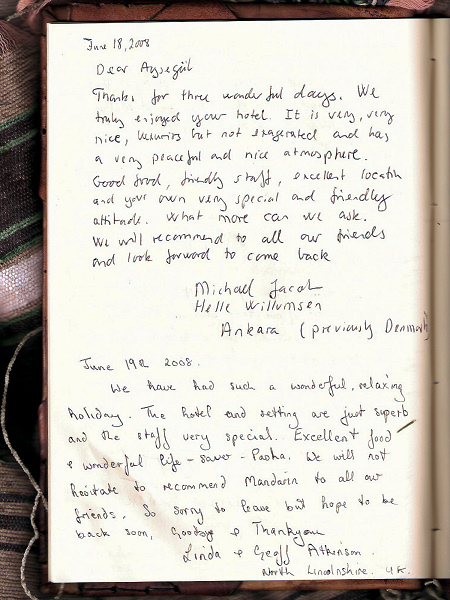 June 18, 2008
Dear Ayşegül
Thanks for three wonderful days. We
truly enjoyed your hotel. It is very, very
nice, luxurios but not exagerated and has
a very peaceful and nice atmosphere.
Good food, friendly staff, excellent location
and your own very special and friendly
attitude. What more can we ask.
We will recommend to all our friends
and look forward to come back
Michael Jacob
Helle Willumsen
Ankara (previously Denmark)
June 19th 2008.
We have had such a wonderful, relaxing
holiday. The hotel and setting are just superb
and the staff very special. Excellent food
& wonderful life-saver - Pasha. We will not
hesitate to recommend Mandarin to all our
friends. So sorry to leave but hope to be
back soon, Goodbye & Thankyou
Linda & Geoff Atkinson.
North Lincolnshire. U.K.